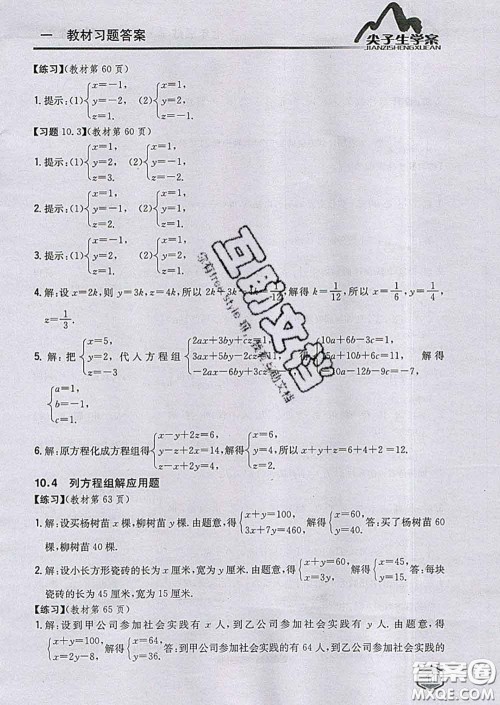 一 教材习题答案
尖子生学案
JIANZISHENGXUEAN
【练习】(教材第 60 页)
1. 提示:(1) { x=-1, y=2, z=1. (2) { x=1, y=2, z=-1.
【习题 10.3】(教材第 60 页)
1. 提示:(1) { x=1, y=2, z=3. (2) { x=1, y=2, z=-2.
2. 提示:(1) { x=1, y=-1, z=2. (2) { x=1, y=2, z=1.
3. 提示:(1) { x=1, y=2, z=1. (2) { x=1, y=2, z=1.
4. 解:设 x=2k,则 y=3k,z=4k,所以 2k+3k 解得 k=1/12,所以 x=1/6,y=1/4,
z=1/3.
5. 解:把 { x=5, y=2, z=-3 代入方程组 { 2ax+3by+cz 3ax-by 得 10a+6b-3c=1, 5a+10b+6c=11, 10a-12b-9=-7, 解得
{ a=1, b=-1, c=1.
6. 解:原方程化成方程组得 { x-y+2z=6, y-z+2x=14, z-x+2y=4, 解得 { x=6, y=4, z=2, 所以 x+y+z=6+4+2=12.
10.4 列方程组解应用题
【练习】(教材第 63 页)
1. 解:设买杨树苗 x 棵,柳树苗 y 棵. 由题意,得 { x+y=100, 3x+7y=460, 解得 { x=60, y=40. 答:买了杨树苗 60
棵,柳树苗 40 棵.
2. 解:设小长方形瓷砖的长为 x 厘米,宽为 y 厘米. 由题意,得 { x+y=60, x=3y, 解得 { x=45, y=15. 答:每块
瓷砖的长为 45 厘米,宽为 15 厘米.
【练习】(教材第 65 页)
1. 解:设到甲公司参加社会实践有 x 人,到乙公司参加社会实践有 y 人. 由题意,得
{ x+y=100, x=2y-8, 解得 { x=64, y=36. 答:到甲公司参加社会实践的有 64 人,到乙公司参加社会实践的
互助文档
答案圈
MXQE.COM